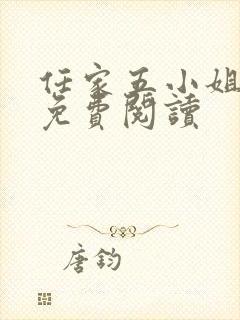 任家五小姐
免費閱讀
唐鈞